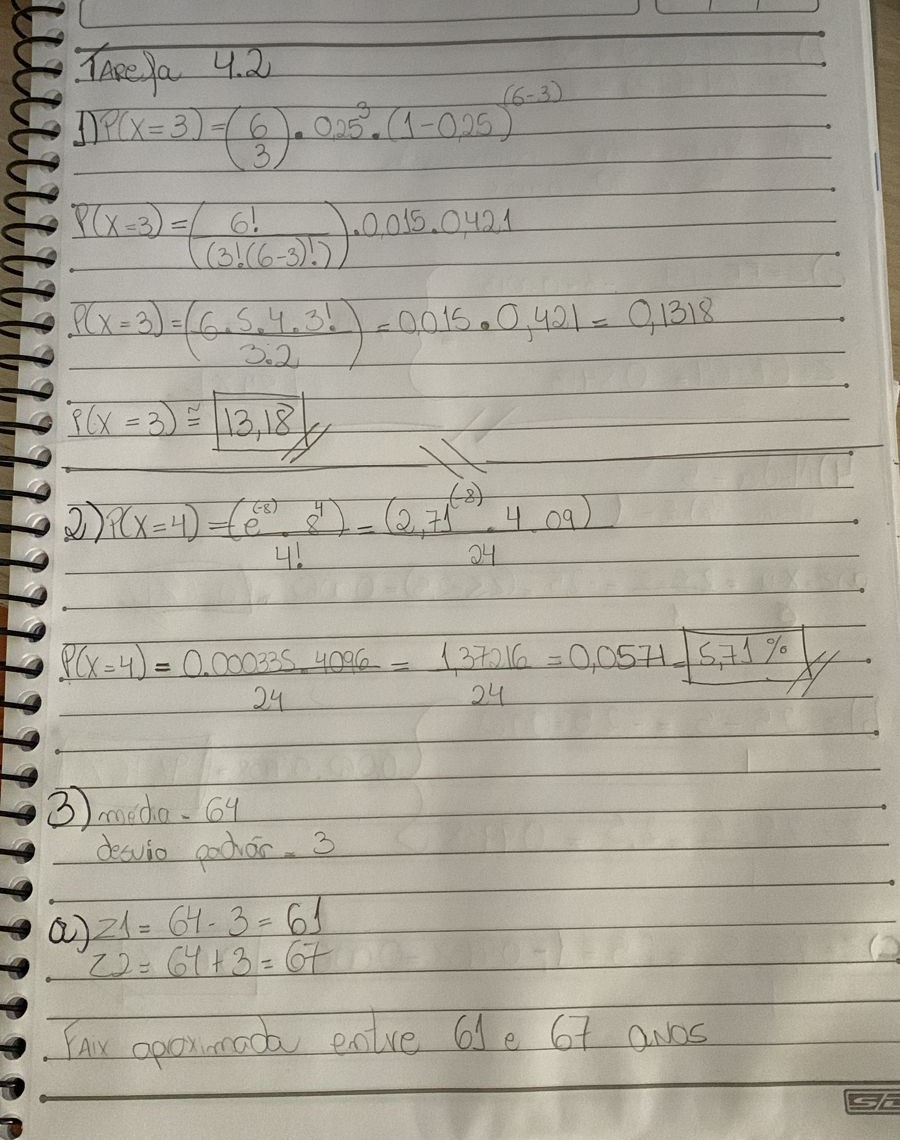 Tarefa 4.2
1) P(X=3) = (6 3) . 0,25³ . (1-0,25)^(6-3)
P(X=3) = (6! / (3!(6-3)!)) . 0,015 . 0,421
P(X=3) = (6.5.4.3! / 3.2) = 0,015 . 0,421 = 0,1318
P(X=3) ≅ 13,18
2) P(X=4) = (e^(-8) . 8^4) / 4! = (2,71^(-8) . 4.09) / 24
P(X=4) = 0.000335.4096 / 24 = 1,37216 / 24 = 0,0571 = 5,71 %
3) média - 64
desvio padrão = 3
a) Z1 = 64 - 3 = 61
Z2 = 64 + 3 = 67
Faix aproximada entre 61 e 67 anos